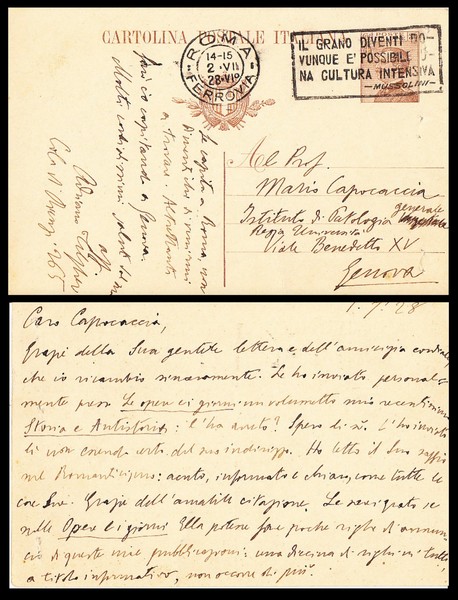 CARTOLINA POSTALE ITALIANA
ROMA
14-15
2·VII
28·VI
FERROVIA
IL GRANO DIVENTI DO-
VUNQUE E' POSSIBILE U-
NA CULTURA INTENSIVA
—MUSSOLINI—
Al Prof.
Mario Capocaccia
Istituto di Patologia generale
Regia Università
Viale Benedetto XV
Genova
Se capita a Roma, non
dimentichi di venirmi
a trovare. Altrettanto
farò io capitando a Genova.
Molti cordialissimi saluti dal suo
aff.
Adriano Tilgher
1.7.28
Caro Capocaccia,
Grazie della Sua gentile lettera e dell'amicizia cordiale,
che io ricambio sinceramente. Le ho inviato, personal-
mente presso Le opere e i giorni un volumetto mio recentissimo
Storia e Antistoria: l'ha avuto? Spero di sì. L'ho inviato
lì non avendo certo del suo indirizzo. Ho letto il Suo saggio
sul Romanticismo: acuto, informato e chiaro, come tutte le
cose Sue. Grazie dell'amabile citazione. Le sarei grato se
nelle Opere e i giorni Ella potesse fare poche righe di annun-
cio di queste mie pubblicazioni: una diecina di righe in tutto
a titolo informativo, non occorre di più.